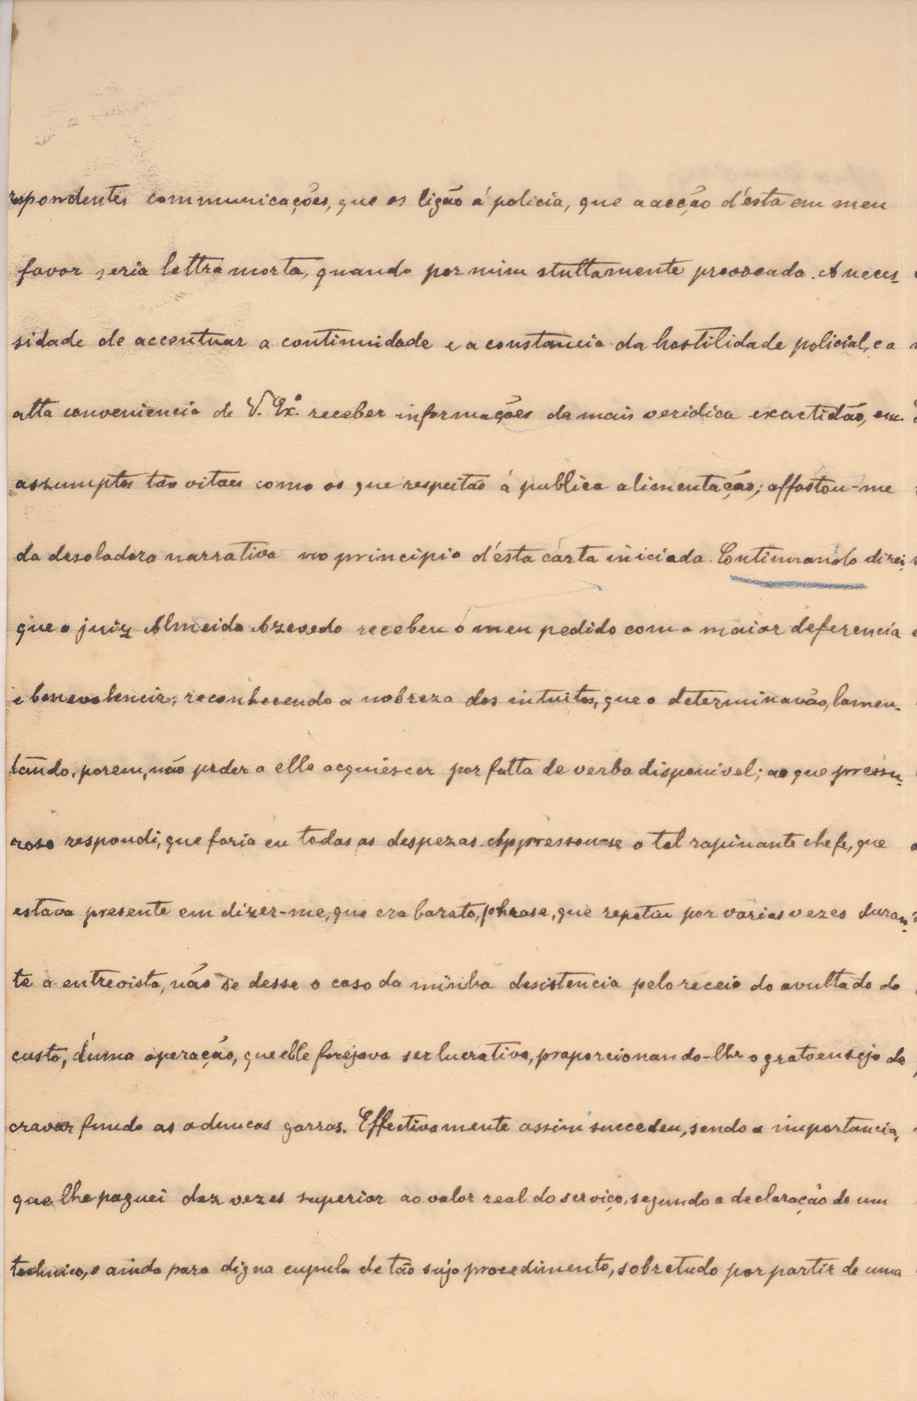 respondentes communicações, que os ligão á policia, que a acção d'ésta em meu
favor seria lettra morta, quando por mim stultamente provocada. A neces-
sidade de accentuar a continuidade e a constancia da hostilidade policial, e a
alta conveniencia de V. Exª. receber informações da mais veridica exactidão, em
assumptos tão vitaes como os que respeitão á publica alimentação; affastou-me
da desoladora narrativa no principio d'ésta carta iniciada. Continuando direi,
que o juiz Almeida Azevedo recebeu o meu pedido com a maior deferencia
e benevolencia; reconhecendo a nobreza dos intuitos, que o determinavão, lamen-
tando, porem, não poder a elle acquiescer por falta de verba disponivel; ao que pressu-
roso respondi, que faria eu todas as despezas. Appressou-se o tal rapinante chefe, que
estava presente em dizer-me, que era barato, phrase, que repetiu por varias vezes duran-
te a entrevista, não se desse o caso da minha desistencia pelo receio do avultado do
custo, d'uma operação, que elle forejava ser lucrativa, proporcionando-lhe o grato ensejo de
cravar fundo as aduncas garras. Effectivamente assim succedeu, sendo a importancia,
que lhe paguei dez vezes superior ao valor real do serviço, segundo a declaração de um
technico, e ainda para digna cupula de tão sujo procedimento, sobretudo por partir de uma